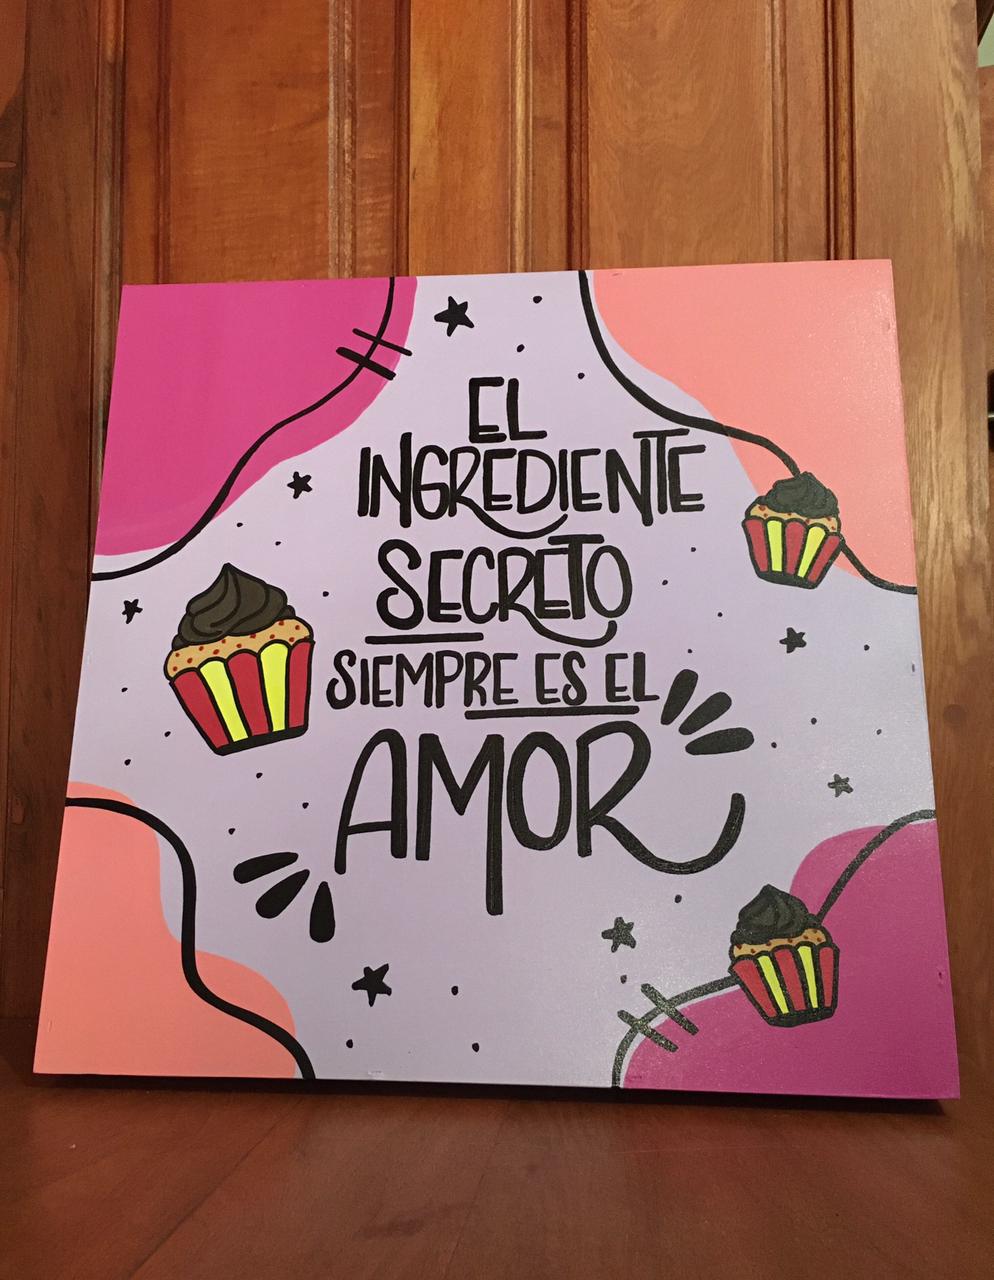 EL
INGREDIENTE
SECRETO
SIEMPRE ES EL
AMOR